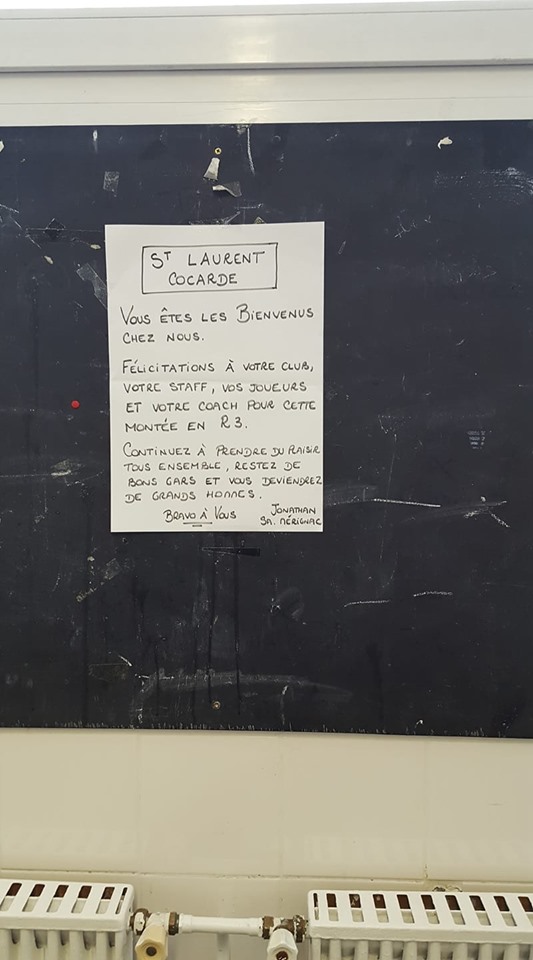 ST LAURENT
COCARDE
VOUS ÊTES LES BIENVENUS
CHEZ NOUS.
FÉLICITATIONS À VOTRE CLUB,
VOTRE STAFF, VOS JOUEURS
ET VOTRE COACH POUR CETTE
MONTÉE EN R3.
CONTINUEZ À PRENDRE DU PLAISIR
TOUS ENSEMBLE, RESTEZ DE
BONS GARS ET VOUS DEVIENDREZ
DE GRANDS HOMMES.
BRAVO À VOUS
JONATHAN
SA. MÉRIGNAC